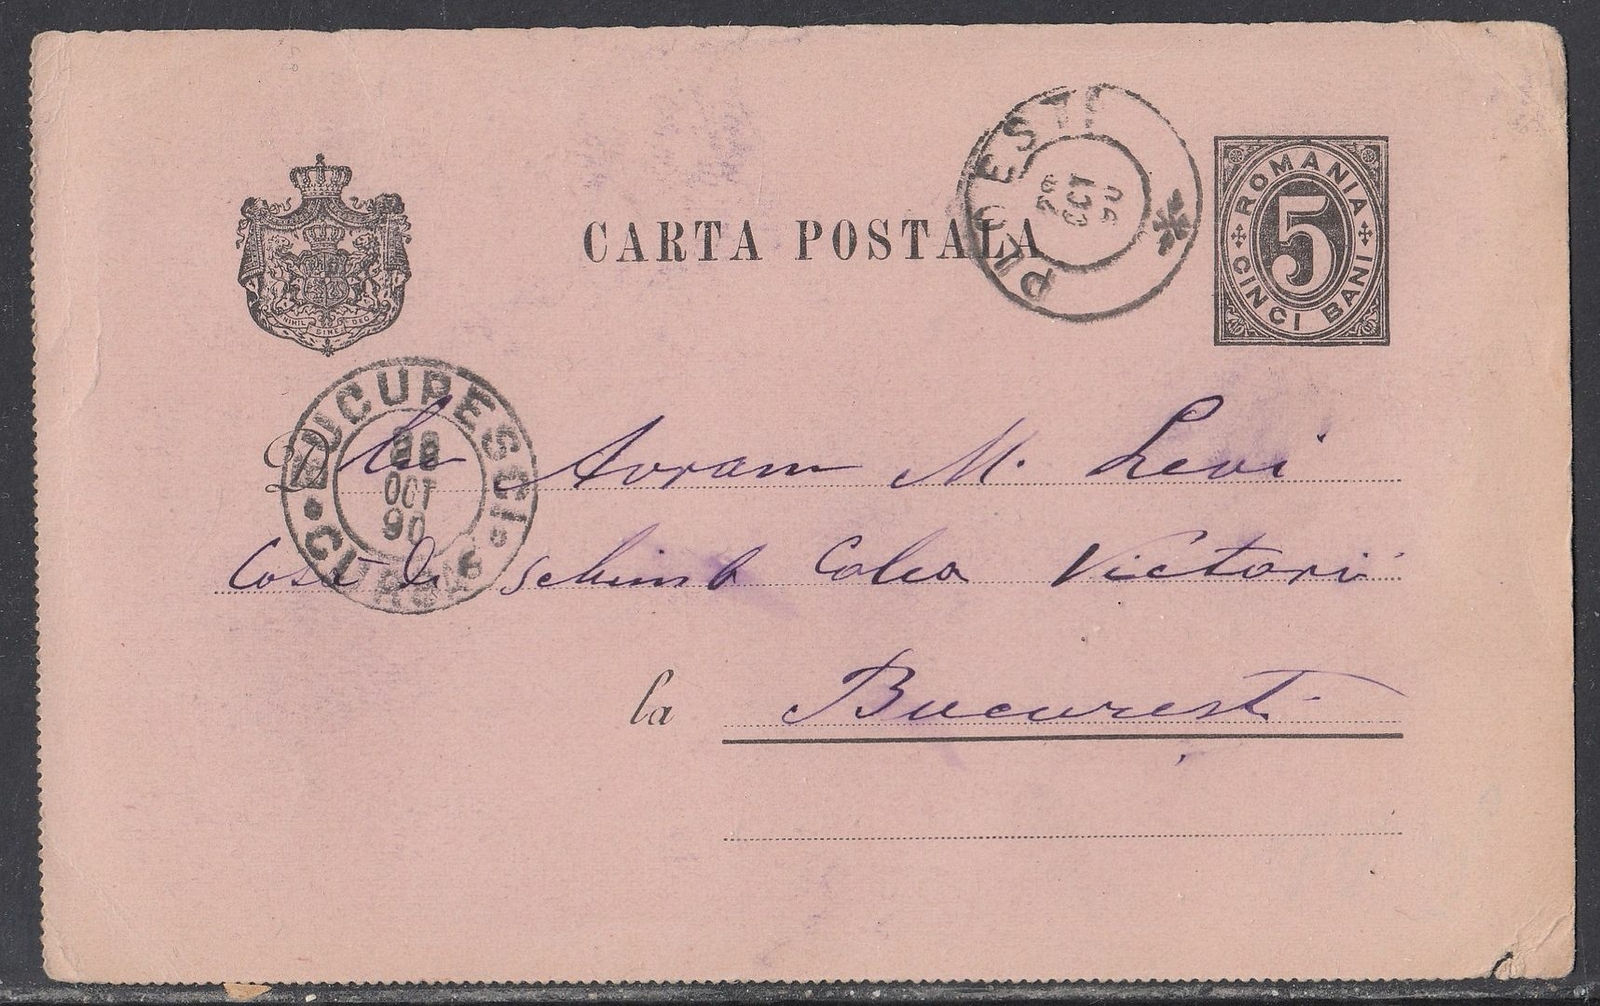 CARTA POSTALA
PLOESTI
OCT
90
ROMANIA
5
CINCI BANI
NIHIL SINE DEO
BUCURESCI
28
OCT
90
CURSA 6
Dlui Avram M. Levi
Casa de schimb Calea Victorii
la Bucuresti